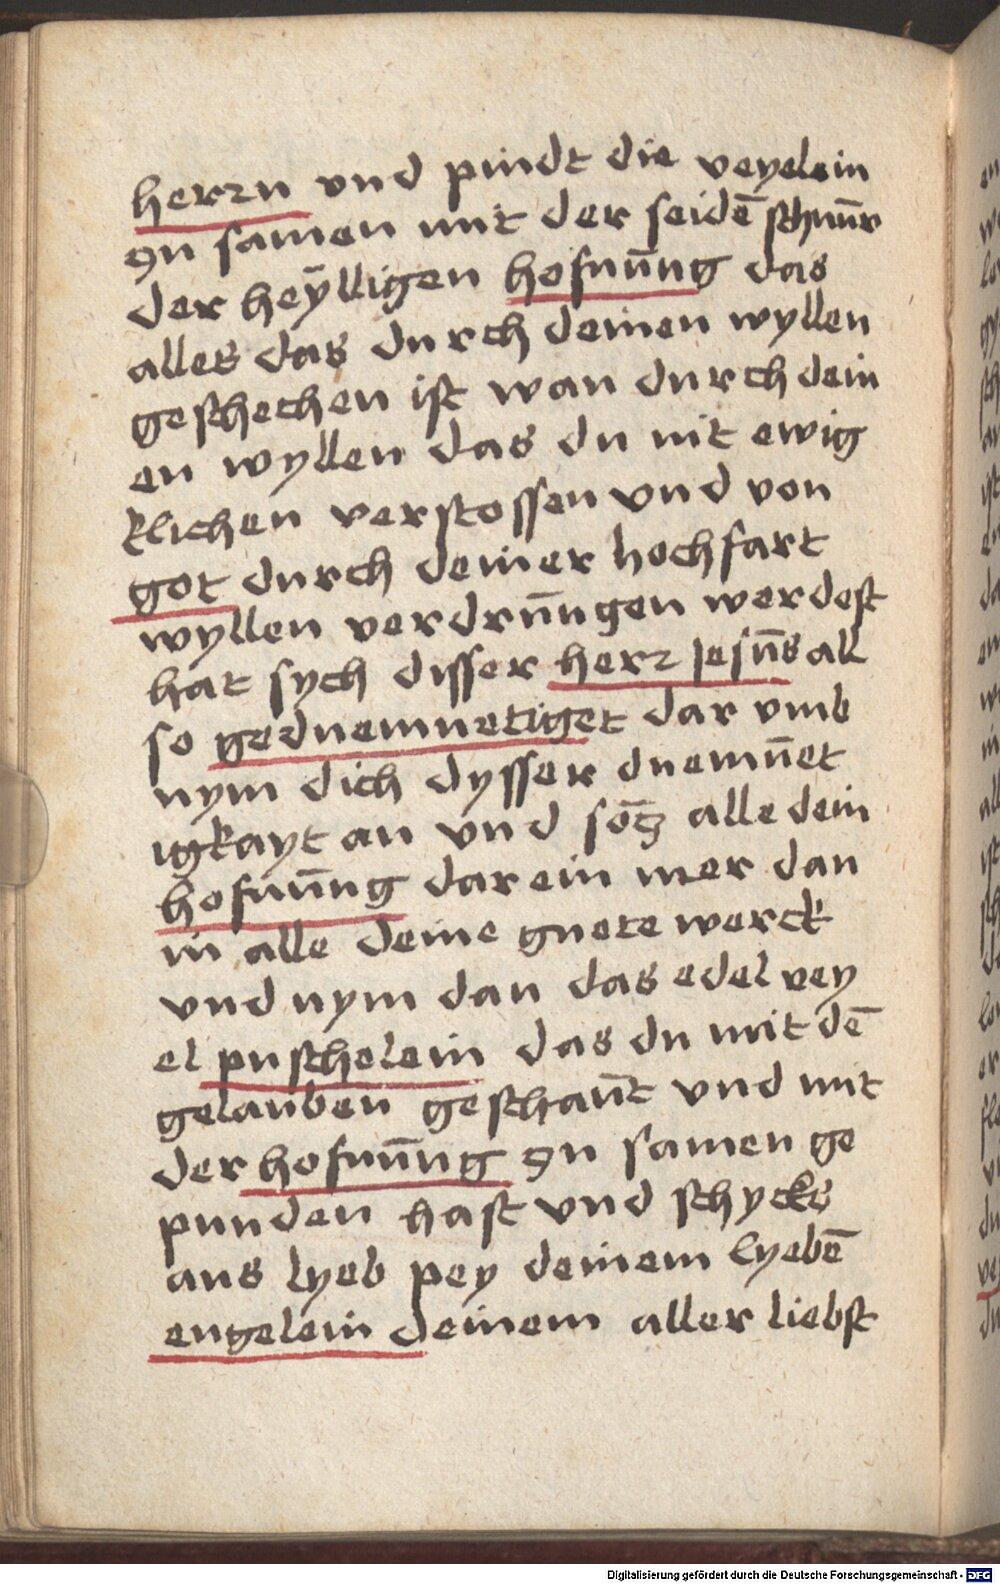 herrn vnd pindt die veyelein
zu samen mit der seidē schnuͤr
der heÿlligen hofnūng das
alles das durch deinen wyllen
geschechen ist wan durch dein
en wyllen das du nit ewig
klichen verstossen vnd von
got durch deiner hochfart
wyllen verdrūngen werdest
hat sych disser herr Jesūs all
so geduemuetiget dar vmb
nym dich dysser duemūet
igkayt an vnd sōtz alle dein
hofnūng dar ein mer dan
in alle deine guete werck
vnd nym dan das edel vey
el puschelein das du mit dē
gelauben geschaūt vnd mit
der hofnūng zu samen ge
punden hast vnd schycks
aus lyeb pey deinem lyebē
engelein deinem aller liebst
Digitalisierung gefördert durch die Deutsche Forschungsgemeinschaft - DFG